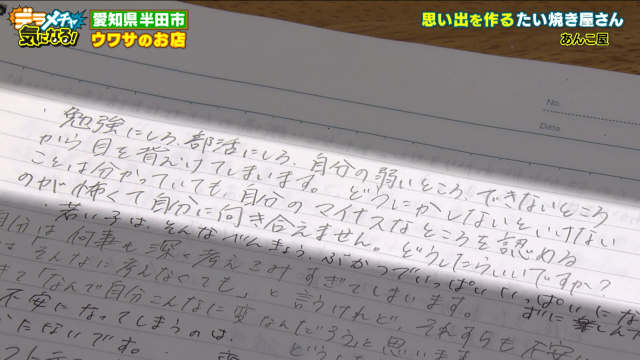 デラメチャ
気になる!
愛知県半田市
ウワサのお店
思い出を作るたい焼き屋さん
あんこ屋
No.
Date
・勉強にしろ、部活にしろ、自分の弱いところ、できないところ
から目を背けてしまいます。どうにかしないといけない
ことは分かっていても、自分のマイナスなところを認める
のが怖くて自分に向き合えません。どうしたらいいですか?
・若い子は、そんなでんきょう、ぶかつでいっぱいいっぱいにな
自分は何事も深く考えこみすぎてしまいます。
はそんなに考えなくても」と言うけれど、それすらも不安
きて「なんで自分こんなに変なんだろう」と思います。
不安になってしまうのは、